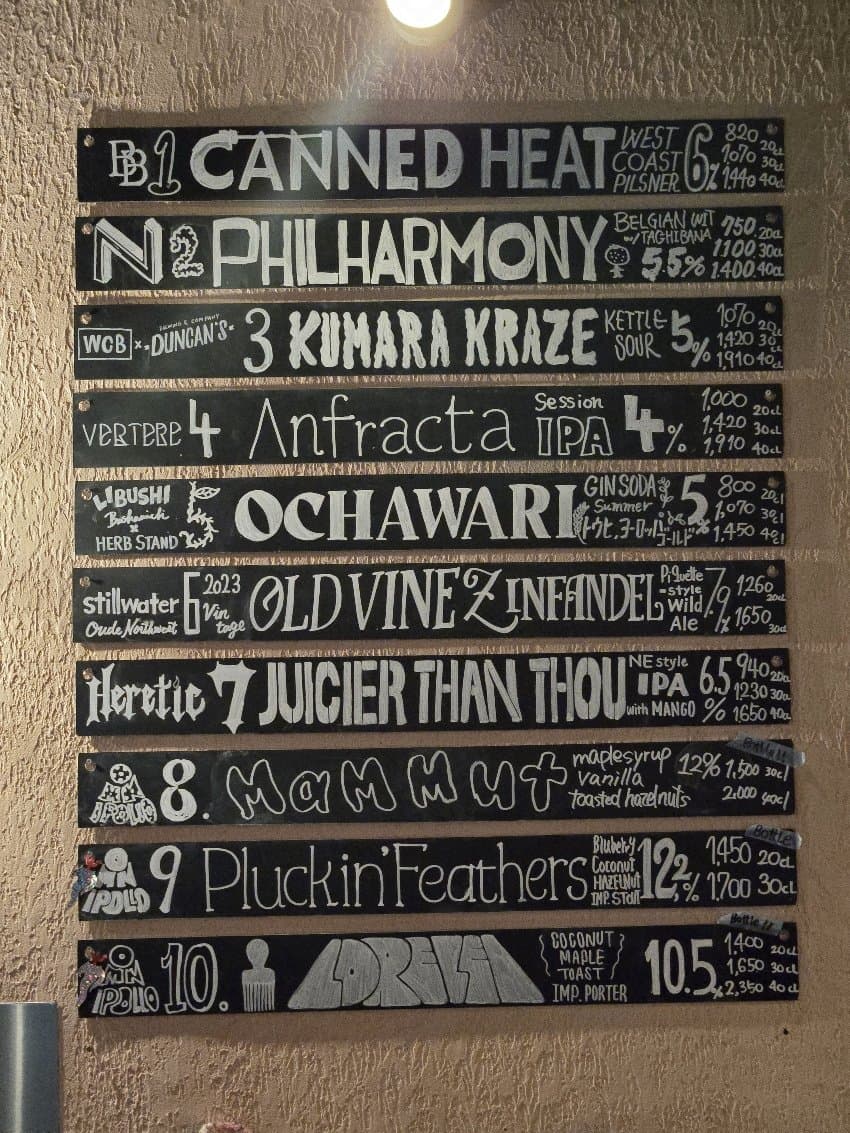 BB 1 CANNED HEAT WEST COAST PILSNER 6% 820 20cl 1,070 30cl 1,440 40cl
N 2 PHILHARMONY BELGIAN WIT w/ TACHIBANA 5.5% 750 20cl 1,100 30cl 1,400 40cl
WCB x BREWING & COMPANY DUNCAN'S 3 KUMARA KRAZE KETTLE SOUR 5% 1,070 20cl 1,420 30cl 1,910 40cl
VERTERE 4 Anfracta Session IPA 4% 1,000 20cl 1,420 30cl 1,910 40cl
LIBUSHI Bushamichi x HERB STAND 5 OCHAWARI GIN SODA Summer トウヒ、ヨーロッパゴールド 5% 800 20cl 1,070 30cl 1,450 40cl
stillwater Oude Northwest 6 2023 Vintage OLD VINE ZINFANDEL Piquette-style Wild Ale 7.9% 1,260 20cl 1,650 30cl
Heretic 7 JUICIER THAN THOU NE style IPA with MANGO 6.5% 940 20cl 1230 30cl 1,650 40cl
OMNIPOLLO 8. Mammut maplesyrup vanilla toasted hazelnuts 12% 1,500 30cl 2,000 40cl Bottle
OMNIPOLLO 9 Pluckin' Feathers Bluberry Coconut HAZELNUT IMP. STOUT 12.2% 1,450 20cl 1,700 30cl Bottle
OMNIPOLLO 10. LORELEI COCONUT MAPLE TOAST IMP. PORTER 10.5% 1,400 20cl 1,650 30cl 2,350 40cl Bottle